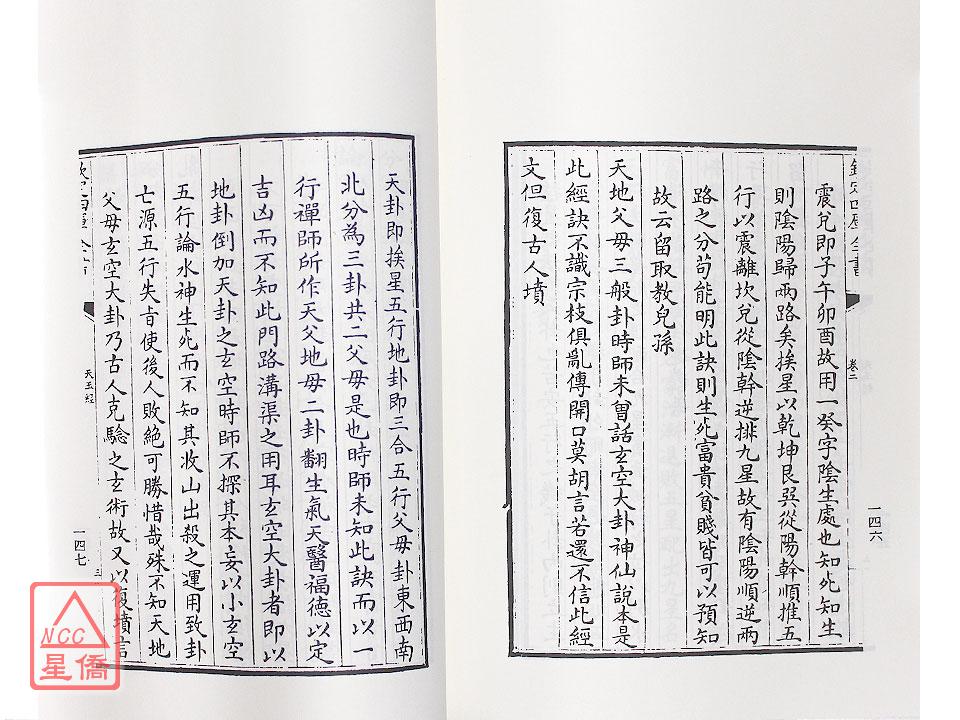 欽定四庫全書
卷二
一四六
震兌即子午卯酉故用一癸字陰生處也知死知生
則陰陽歸兩路矣挨星以乾坤艮巽從陽幹順推五
行以震離坎兌從陰幹逆排九星故有陰陽順逆兩
路之分苟能明此訣則生死富貴貧賤皆可以預知
故云留取教兒孫
天地父母三般卦時師未曾話玄空大卦神仙說本是
此經訣不識宗枝但亂傳開口莫胡言若還不信此經
文但復古人墳
天卦即挨星五行地卦即三合五行父母卦東西南
北分為三卦共二父母是也時師未知此訣而以一
行禪師所作天父地母二卦翻生氣天醫福德以定
吉凶而不知此門路溝渠之用耳玄空大卦者即以
地卦倒加天卦之玄空時師不探其本妄以小玄空
五行論水神生死而不知其收山出殺之運用致卦
亡源五行失旨使後人敗絕可勝惜哉殊不知天地
父母玄空大卦乃古人克驗之玄術故又以復墳言
天玉經
一四七
NCC
星僑